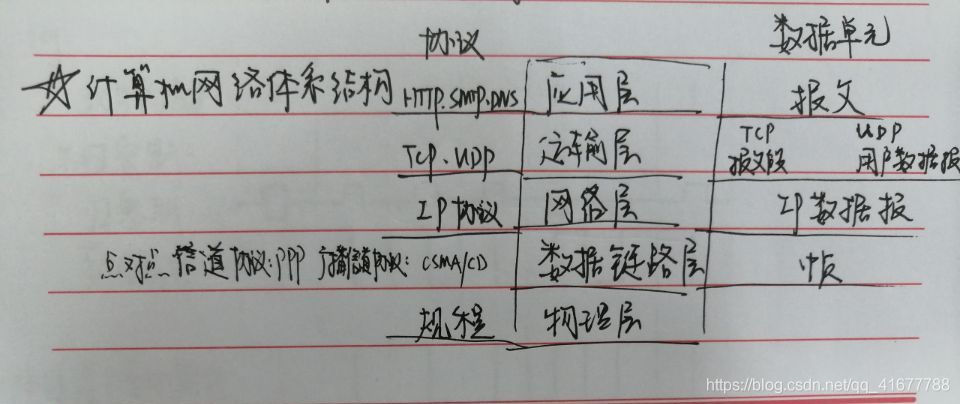 协议 数据单元
☆计算机网络体系结构 HTTP.SMTP.DNS 应用层 报文
TCP UDP
TCP.UDP 运输层 报文段 用户数据报
IP协议 网络层 IP数据报
点对点信道协议:PPP 广播信道协议: CSMA/CD 数据链路层 帧
规程 物理层
https://blog.csdn.net/qq_41677788